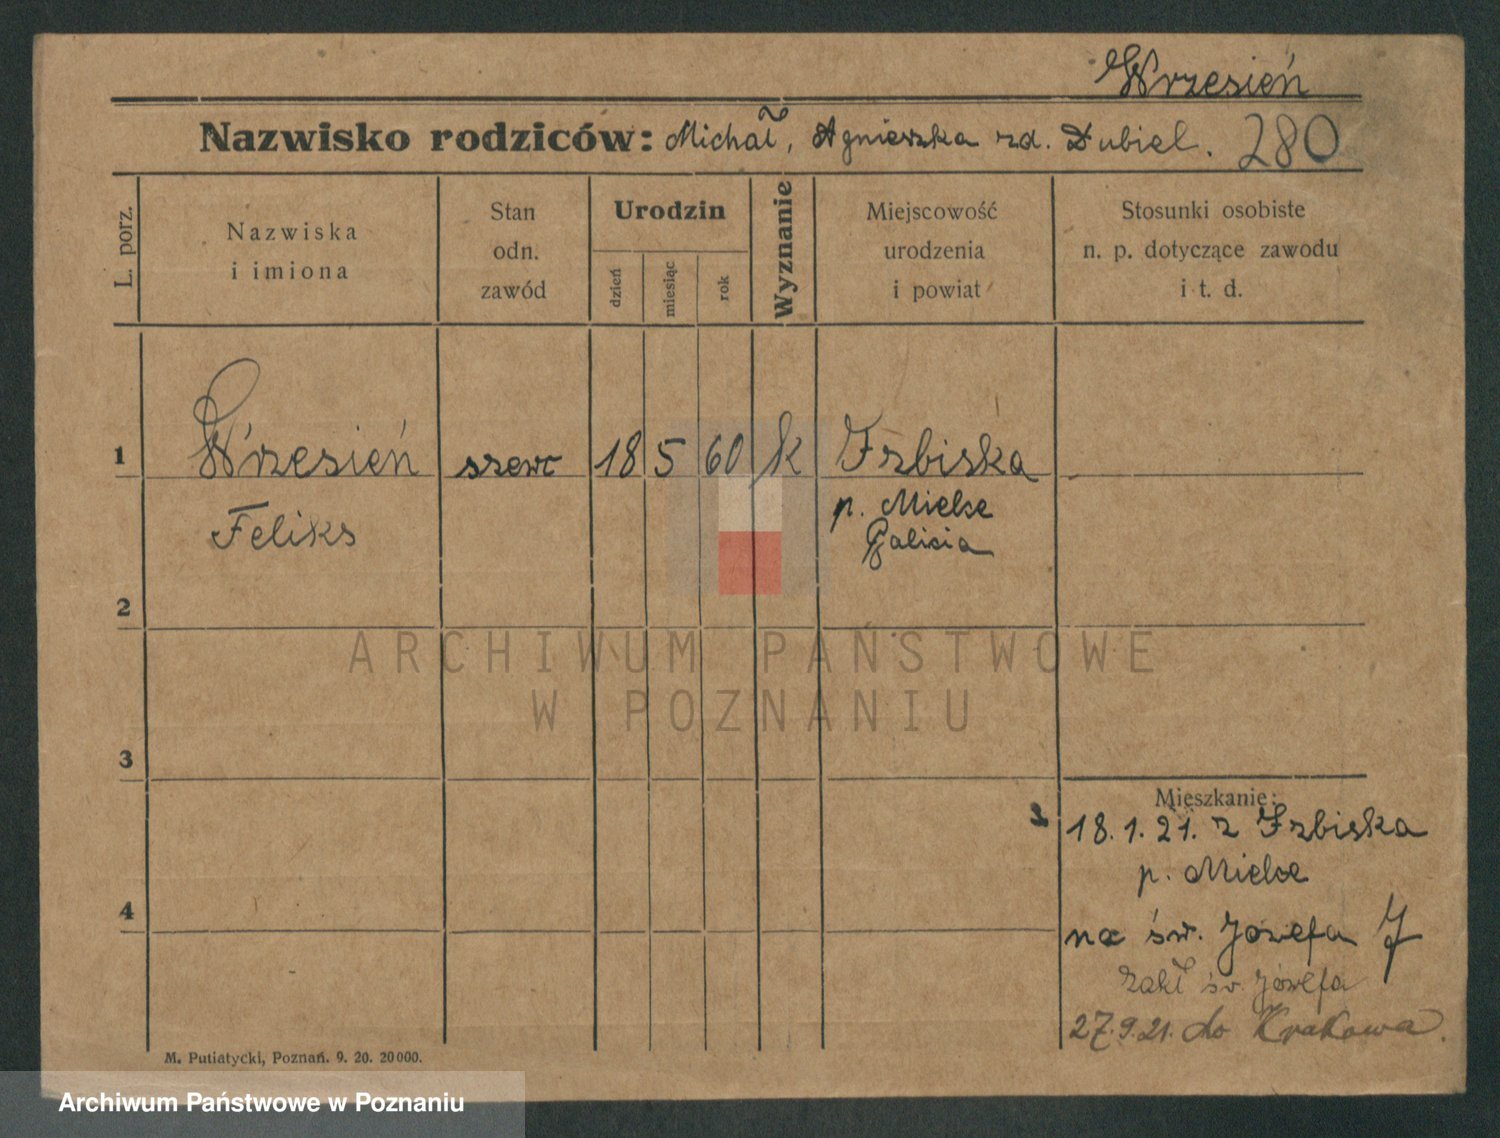 Wrzesień
Nazwisko rodziców: Michał, Agnieszka rd. Dubiel. 280
L. porz.
Nazwiska
i imiona
Stan
odn.
zawód
Urodzin
dzień
miesiąc
rok
Wyznanie
Miejscowość
urodzenia
i powiat
Stosunki osobiste
n. p. dotyczące zawodu
i t. d.
1 Wrzesień szewc 18 5 60 k Izbiska
Feliks
p. Mielec
Galicia
2
3
4
Mieszkanie:
18.1.21. z Izbiska
p. Mielec
na św. Józefa 7
Zakł św. Józefa
27.9.21. do Krakowa.
M. Putiatycki, Poznań. 9. 20. 20000.
ARCHIWUM PAŃSTWOWE
W POZNANIU
Archiwum Państwowe w Poznaniu